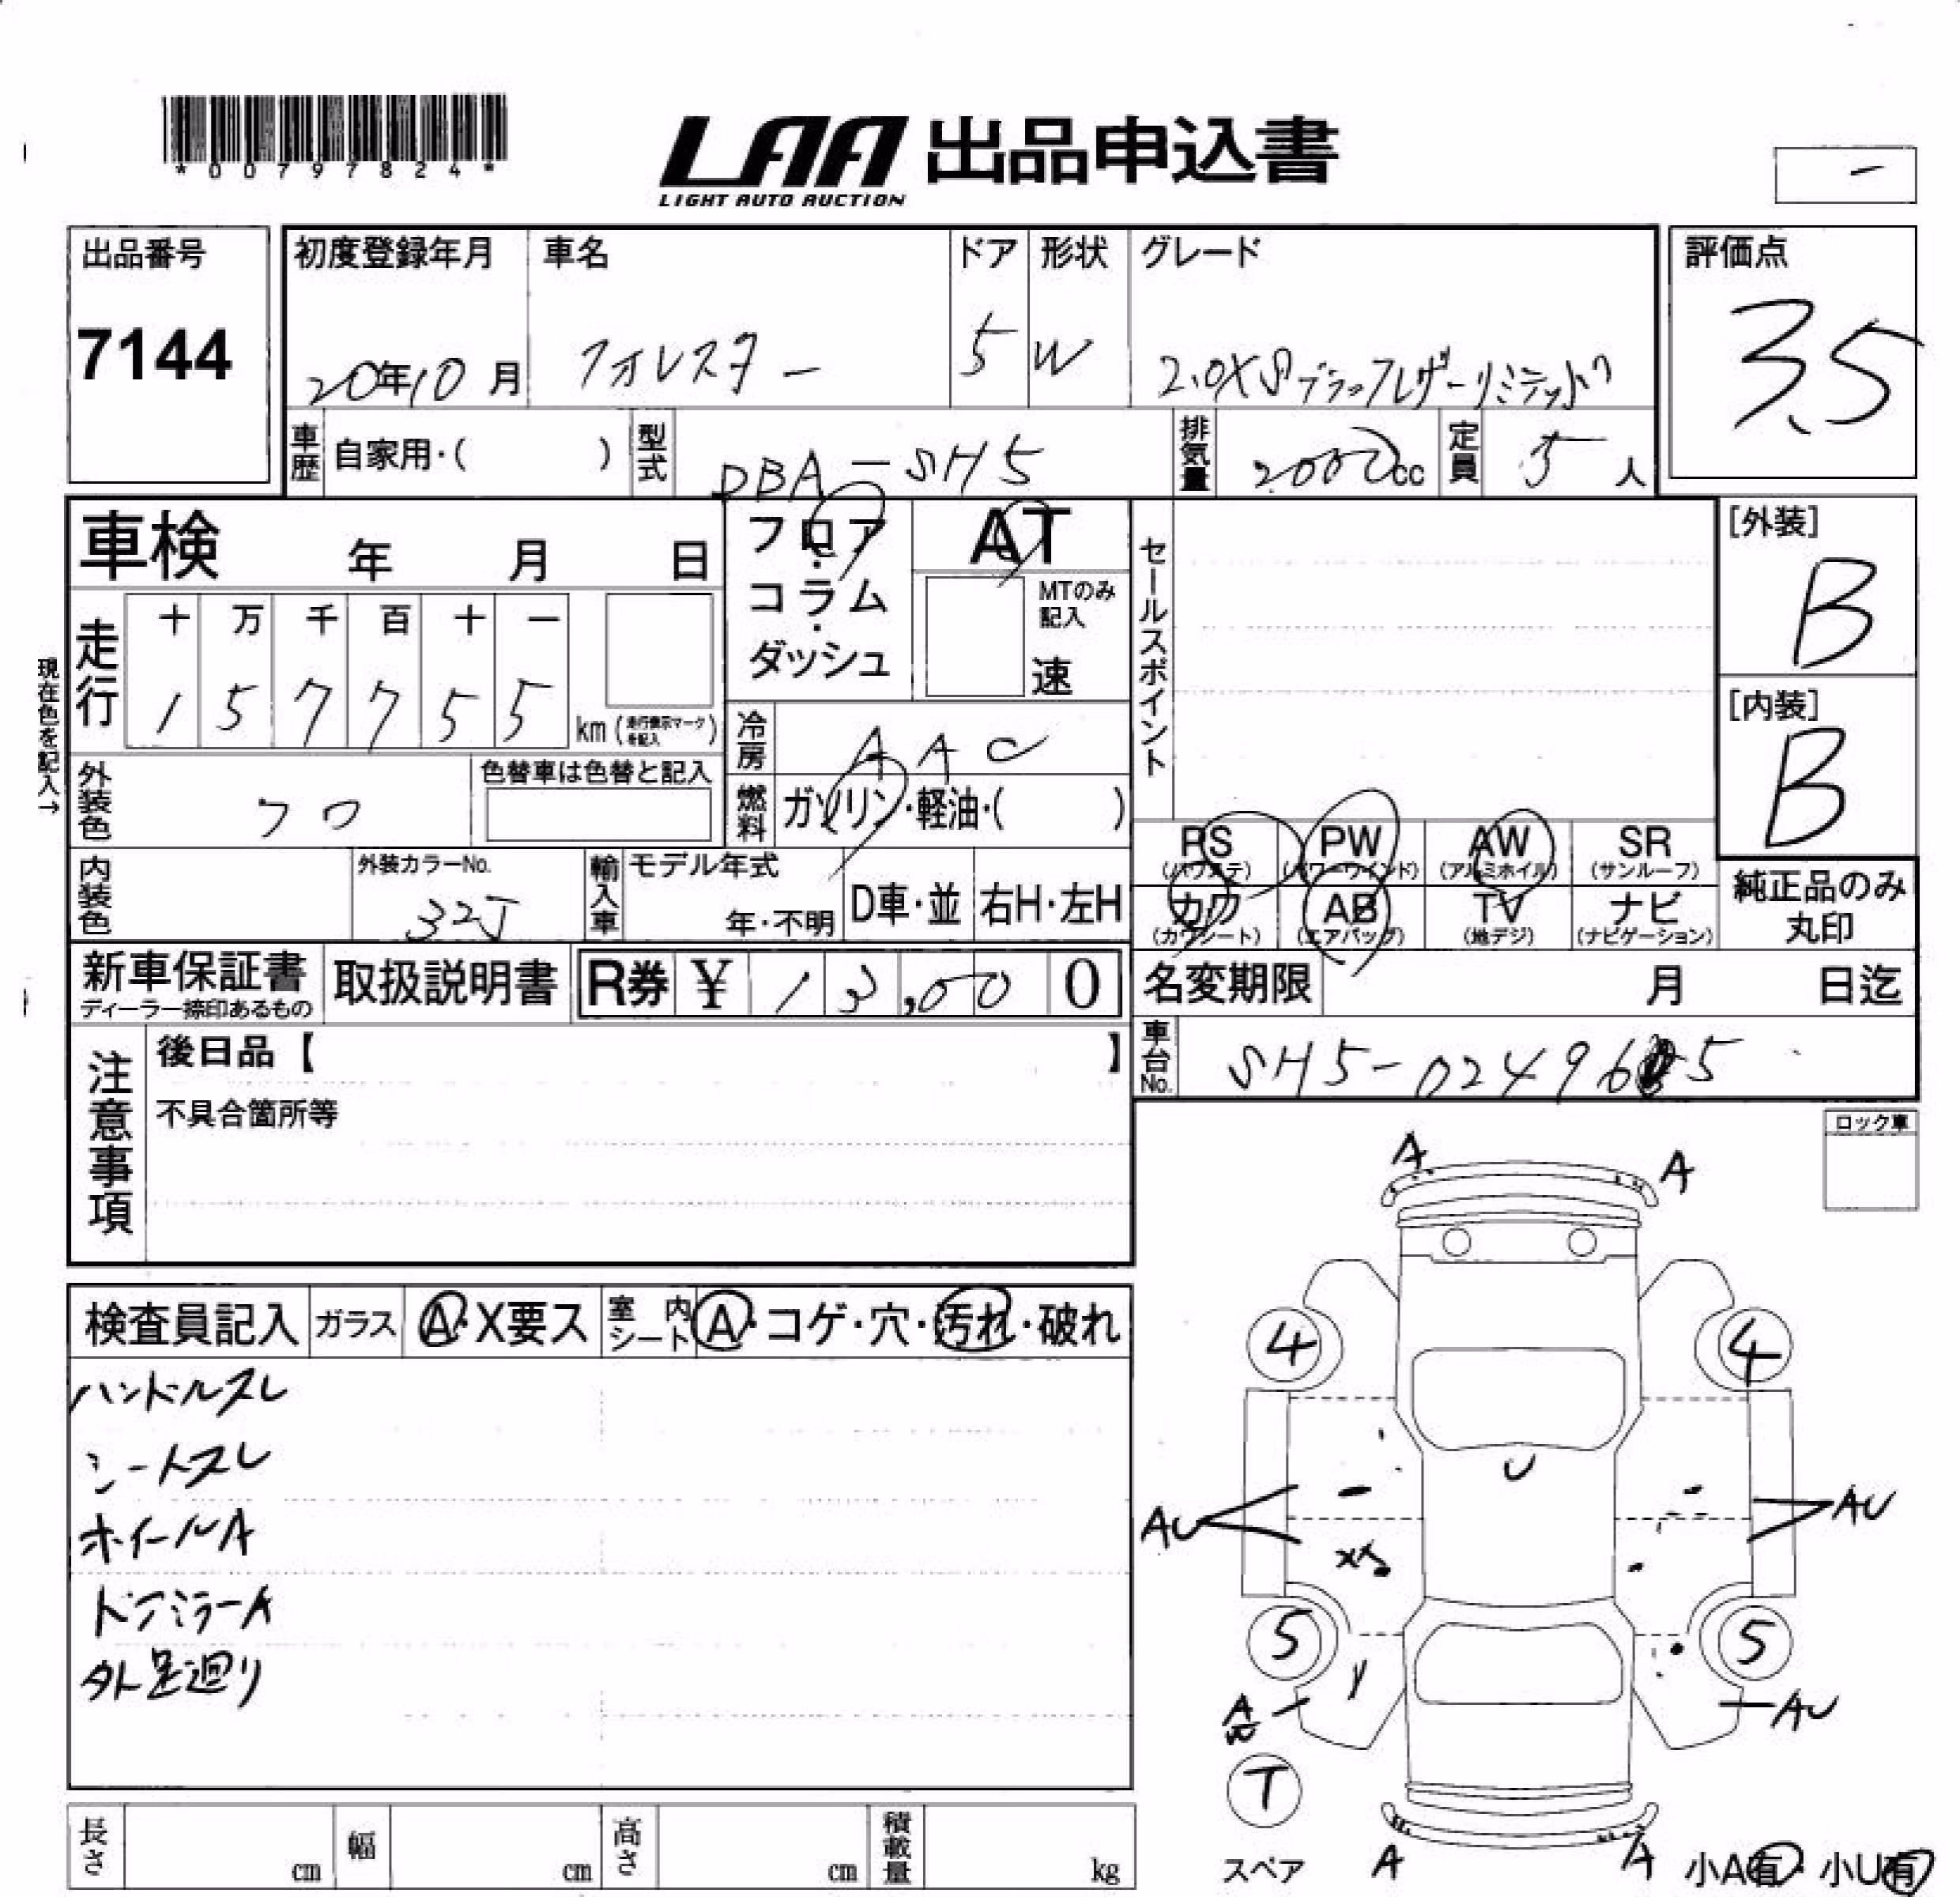 *00797824*
LAA 出品申込書
LIGHT AUTO AUCTION
出品番号 初度登録年月 車名 ドア 形状 グレード 評価点
7144 20年10月 フォレスター 5 W 2.0XSブラックレザーリミテッド 3.5
車歴 自家用・( ) 型式 DBA-SH5 排気量 2000cc 定員 5人
車検 年 月 日 フロア・コラム・ダッシュ AT MTのみ記入 速 セールスポイント [外装] B
現在色を記入→
走行 十 万 千 百 十 一
1 5 7 7 5 5 km(走行表示マークを記入)
[内装] B
冷房 AAC
外装色 クロ 色替車は色替と記入 燃料 ガソリン・軽油・( )
PS (パワステ) PW (パワーウインド) AW (アルミホイル) SR (サンルーフ)
カワ (カワシート) AB (エアバッグ) TV (地デジ) ナビ (ナビゲーション) 純正品のみ丸印
内装色 外装カラーNo. 32J 輸入車 モデル年式 年・不明 D車・並 右H・左H
新車保証書 ディーラー捺印あるもの 取扱説明書 R券 ¥ 13,000 名変期限 月 日迄
車台No. SH5-024965
注意事項 後日品【 】
不具合箇所等
ロック車
検査員記入 ガラス A・X要ス 室内シート A・コゲ・穴・汚れ・破れ
ハンドルスレ
シートスレ
ホイールA
ドアミラーA
外足廻り
A A
4 4
U
AU AU
5 5
A AU
T
スペア A A 小A有・小U有
長さ cm 幅 cm 高さ cm 積載量 kg